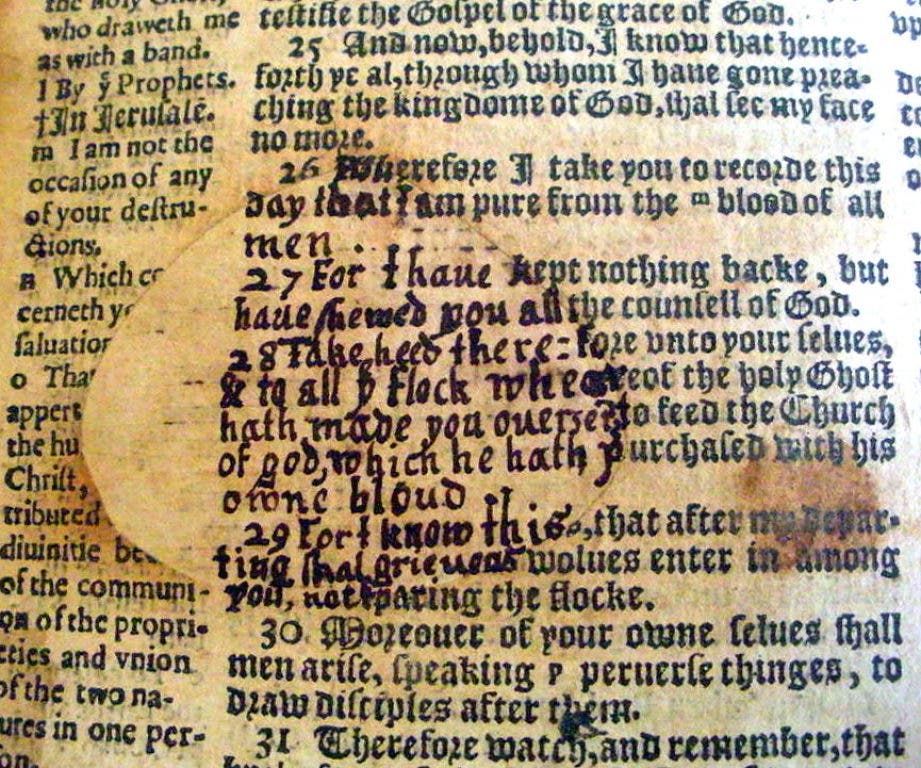 the holy Ghoſt,
who draweth me
as with a band.
l By yͤ Prophets.
†In Jeruſalē.
m I am not the
occaſion of any
of your deſtru-
ctions.
n Which
cerneth
ſaluation
o That
appert
the hu
Chriſt,
tributed
diuinitie
of the communi-
on of the propri-
eties and vnion
of the two na-
ures in one per-
teſtifie the Goſpel of the grace of God.
25 And now, behold, I know that hence-
forth ye al, through whom I haue gone prea-
ching the kingdome of God, ſhal ſee my face
no more.
26 Wherefore I take you to recorde this
day that I am pure from the m blood of all
men .
27 For I haue kept nothing backe, but
haue ſhewed you all the counſell of God.
28 Take heed there=fore vnto your ſelues,
& to all yͤ flock whereof the holy Ghoſt
hath made you ouerſeers to feed the Church
of god, which he hath purchaſed with his
owne bloud .
29 For I know this, that after my depar-
ting ſhal grieuous wolues enter in among
you, not ſparing the flocke.
30 Moreouer of your owne ſelues ſhall
men ariſe, ſpeaking p peruerſe thinges, to
draw diſciples after them.
31 Therefore watch, and remember, that